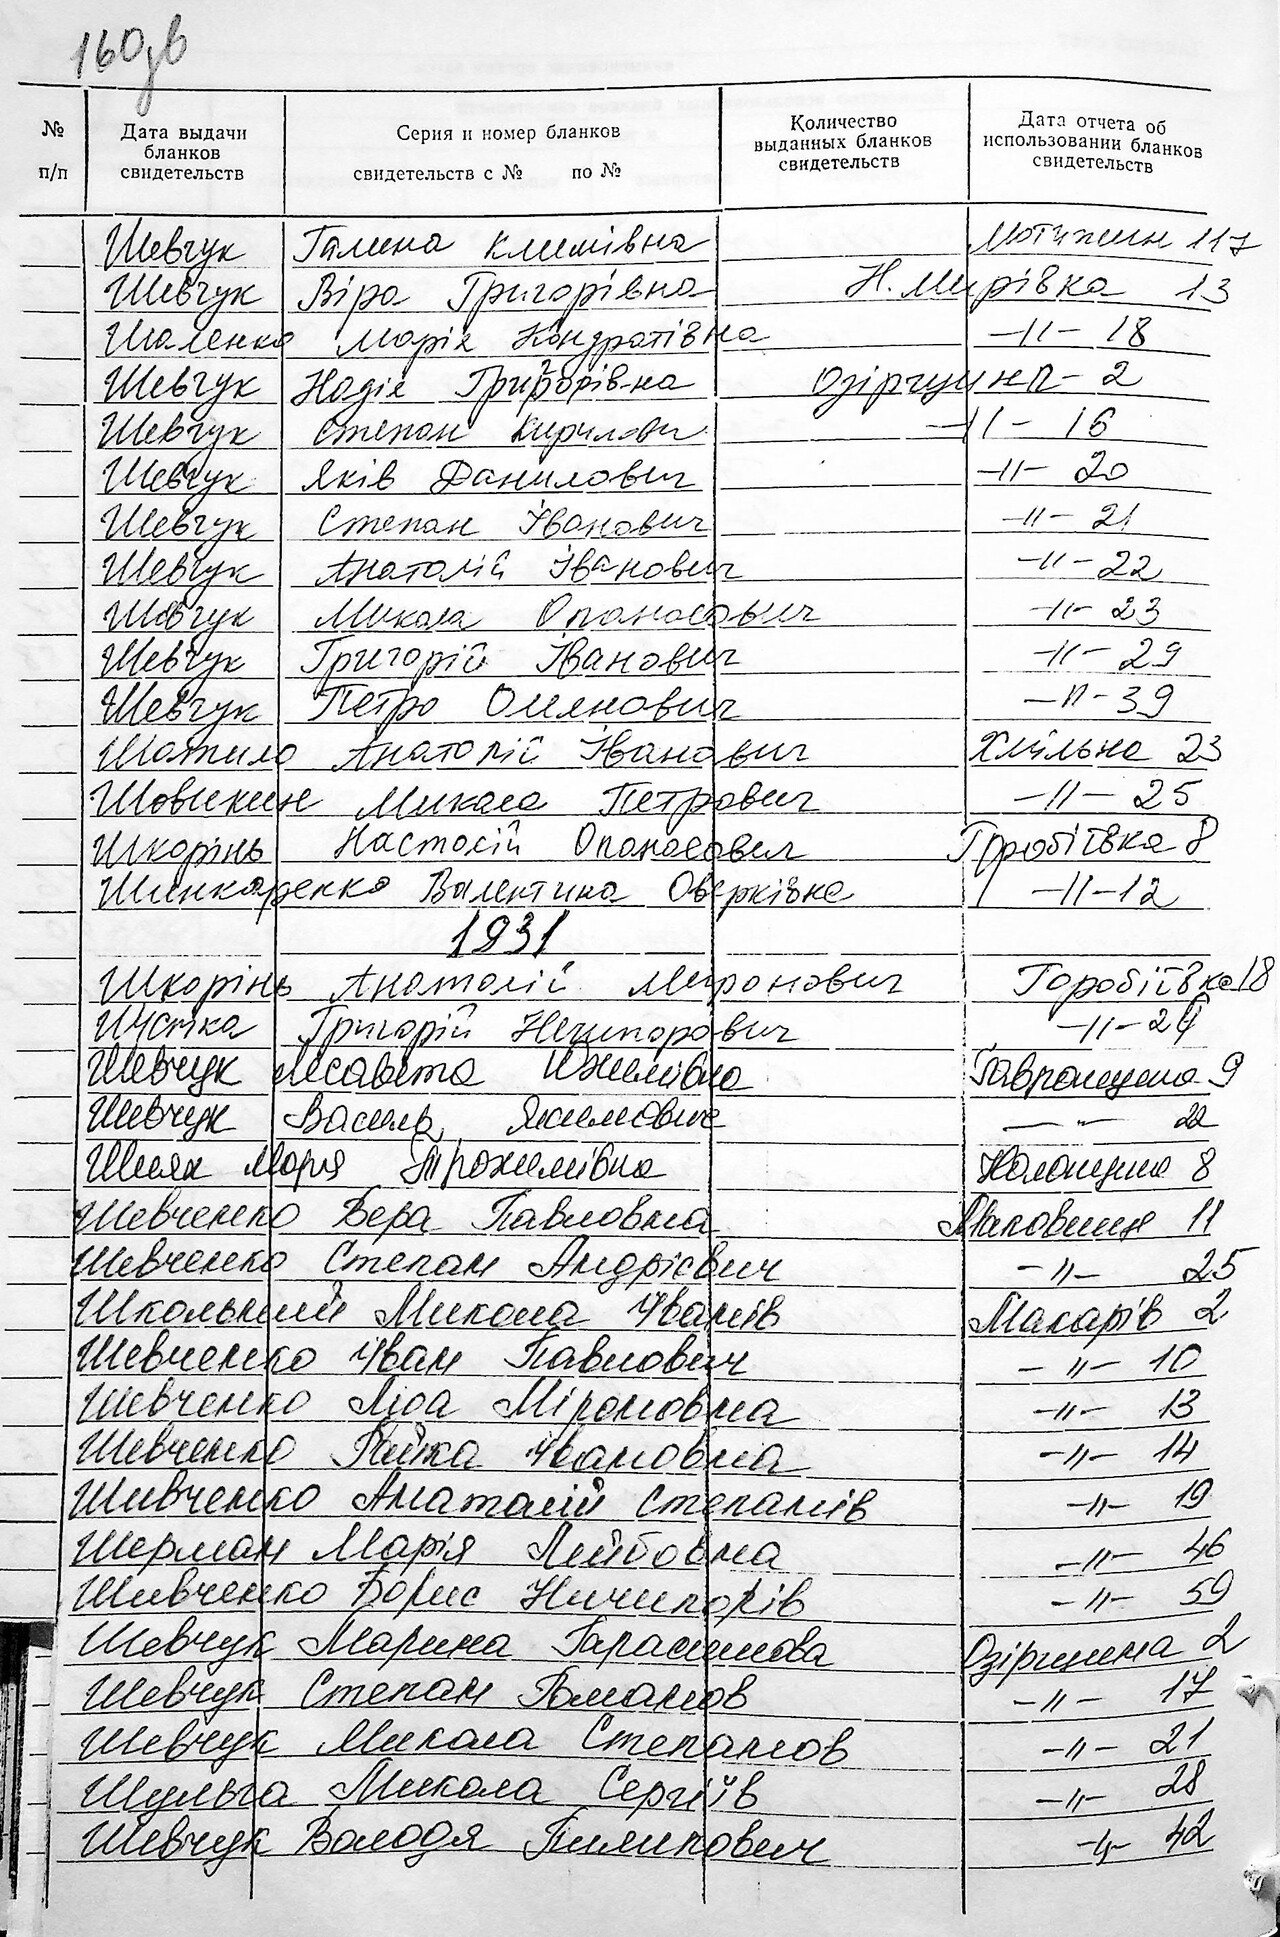 160зв
№ п/п | Дата выдачи бланков свидетельств | Серия и номер бланков свидетельств с № по № | Количество выданных бланков свидетельств | Дата отчета об использовании бланков свидетельств
Шевчук Галина Климівна Мотижин 117
Шевчук Віра Григорівна Н. Мирівка 13
Шаленко Марія Кондратівна -"- 18
Шевчук Надія Григорівна Озірщина 2
Шевчук Степан Кирилович -"- 16
Шевчук Яків Данилович -"- 20
Шевчук Степан Іванович -"- 21
Шевчук Анатолій Іванович -"- 22
Шевчук Микола Опанасович -"- 23
Шевчук Григорій Іванович -"- 29
Шевчук Петро Омянович -"- 39
Шатило Анатолій Іванович Хмільна 23
Микола Петрович -"- 25
Шкорінь Настасій Опанасович Горобіївка 8
Шинкаренко Валентина Оверківна -"- 12
1931
Шкорінь Анатолій Миронович Горобіївка 18
Шустка Григорій Ничипорович -"- 24
Шевчук Лісавета Юхимівна Гавронщина 9
Шевчук Василь Якимович -"- 22
Шияк Марія Трохимівна Колонщина 8
Шевченко Вера Павловна Маковище 11
Шевченко Степан Андрієвич -"- 25
Школьний Микола Іванів Макарів 2
Шевченко Іван Павлович -"- 10
Шевченко Ліда Міроновна -"- 13
Шевченко Івановна -"- 14
Шивченко Анаталій Степанів -"- 19
Шерман Марія Лейбовна -"- 46
Шивченко Борис Ничипорів -"- 59
Шевчук Марина Гарасимова Озірщина 2
Шевчук Степан Романов -"- 17
Шевчук Микола Степанов -"- 21
Шульга Микола Сергіїв -"- 28
Шевчук Володя Пилипович -"- 42